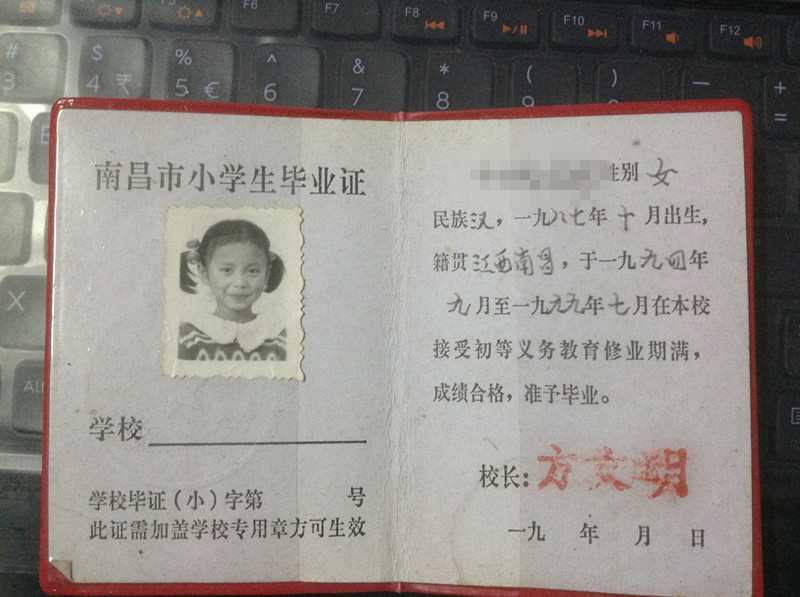 F6
F7
F8
F9
F10
F11
F12
#
3
$
4 ₹
%
5 €
^
6
&
7
*
8
(
9
)
—
+
=
E
X
Alt
南昌市小学生毕业证
学校
学校毕证(小)字第 号
此证需加盖学校专用章方可生效
性别 女
民族汉,一九八七年十月出生,
籍贯江西南昌,于一九九四年
九月至一九九九年七月在本校
接受初等义务教育修业期满,
成绩合格,准予毕业。
校长:方文明
一九 年 月 日